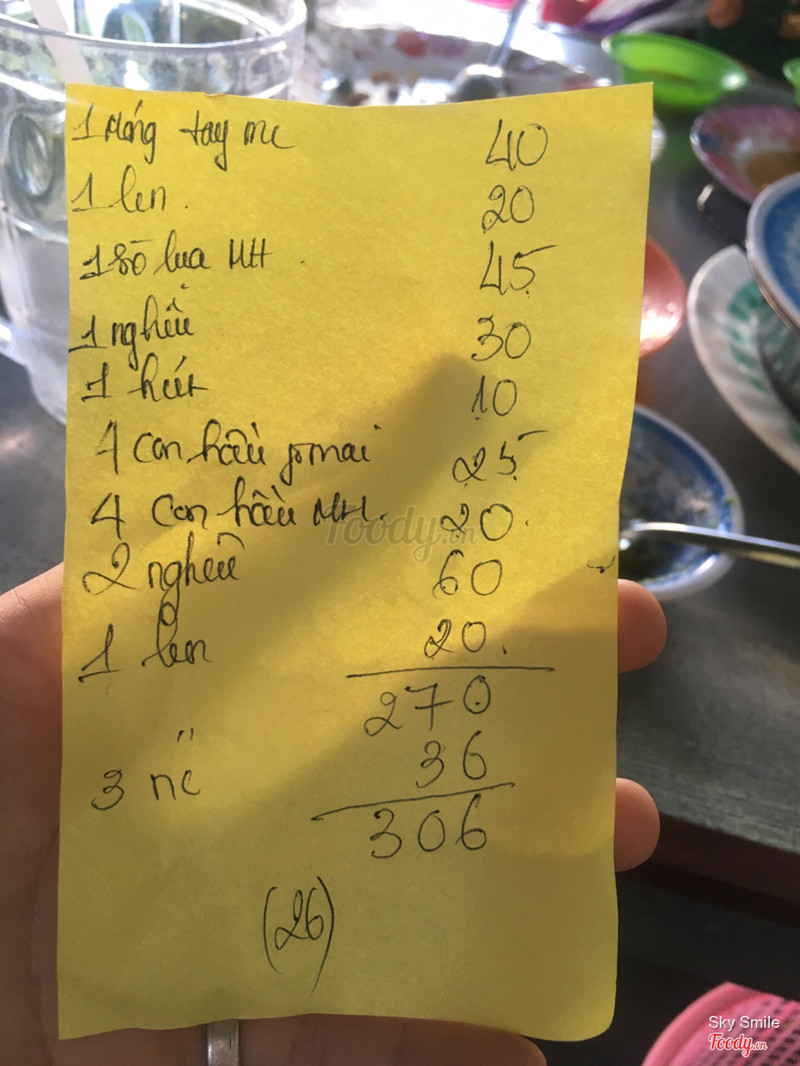 1 móng tay me 40
1 len. 20
1 sò lụa MH. 45
1 nghêu 30
1 hút 10
4 con hàu fomai 25
4 con hàu MH. 20.
2 nghêu 60
1 len 20.
270
3 nc 36
306
(26)
foody.vn
Sky Smile
Foody.vn